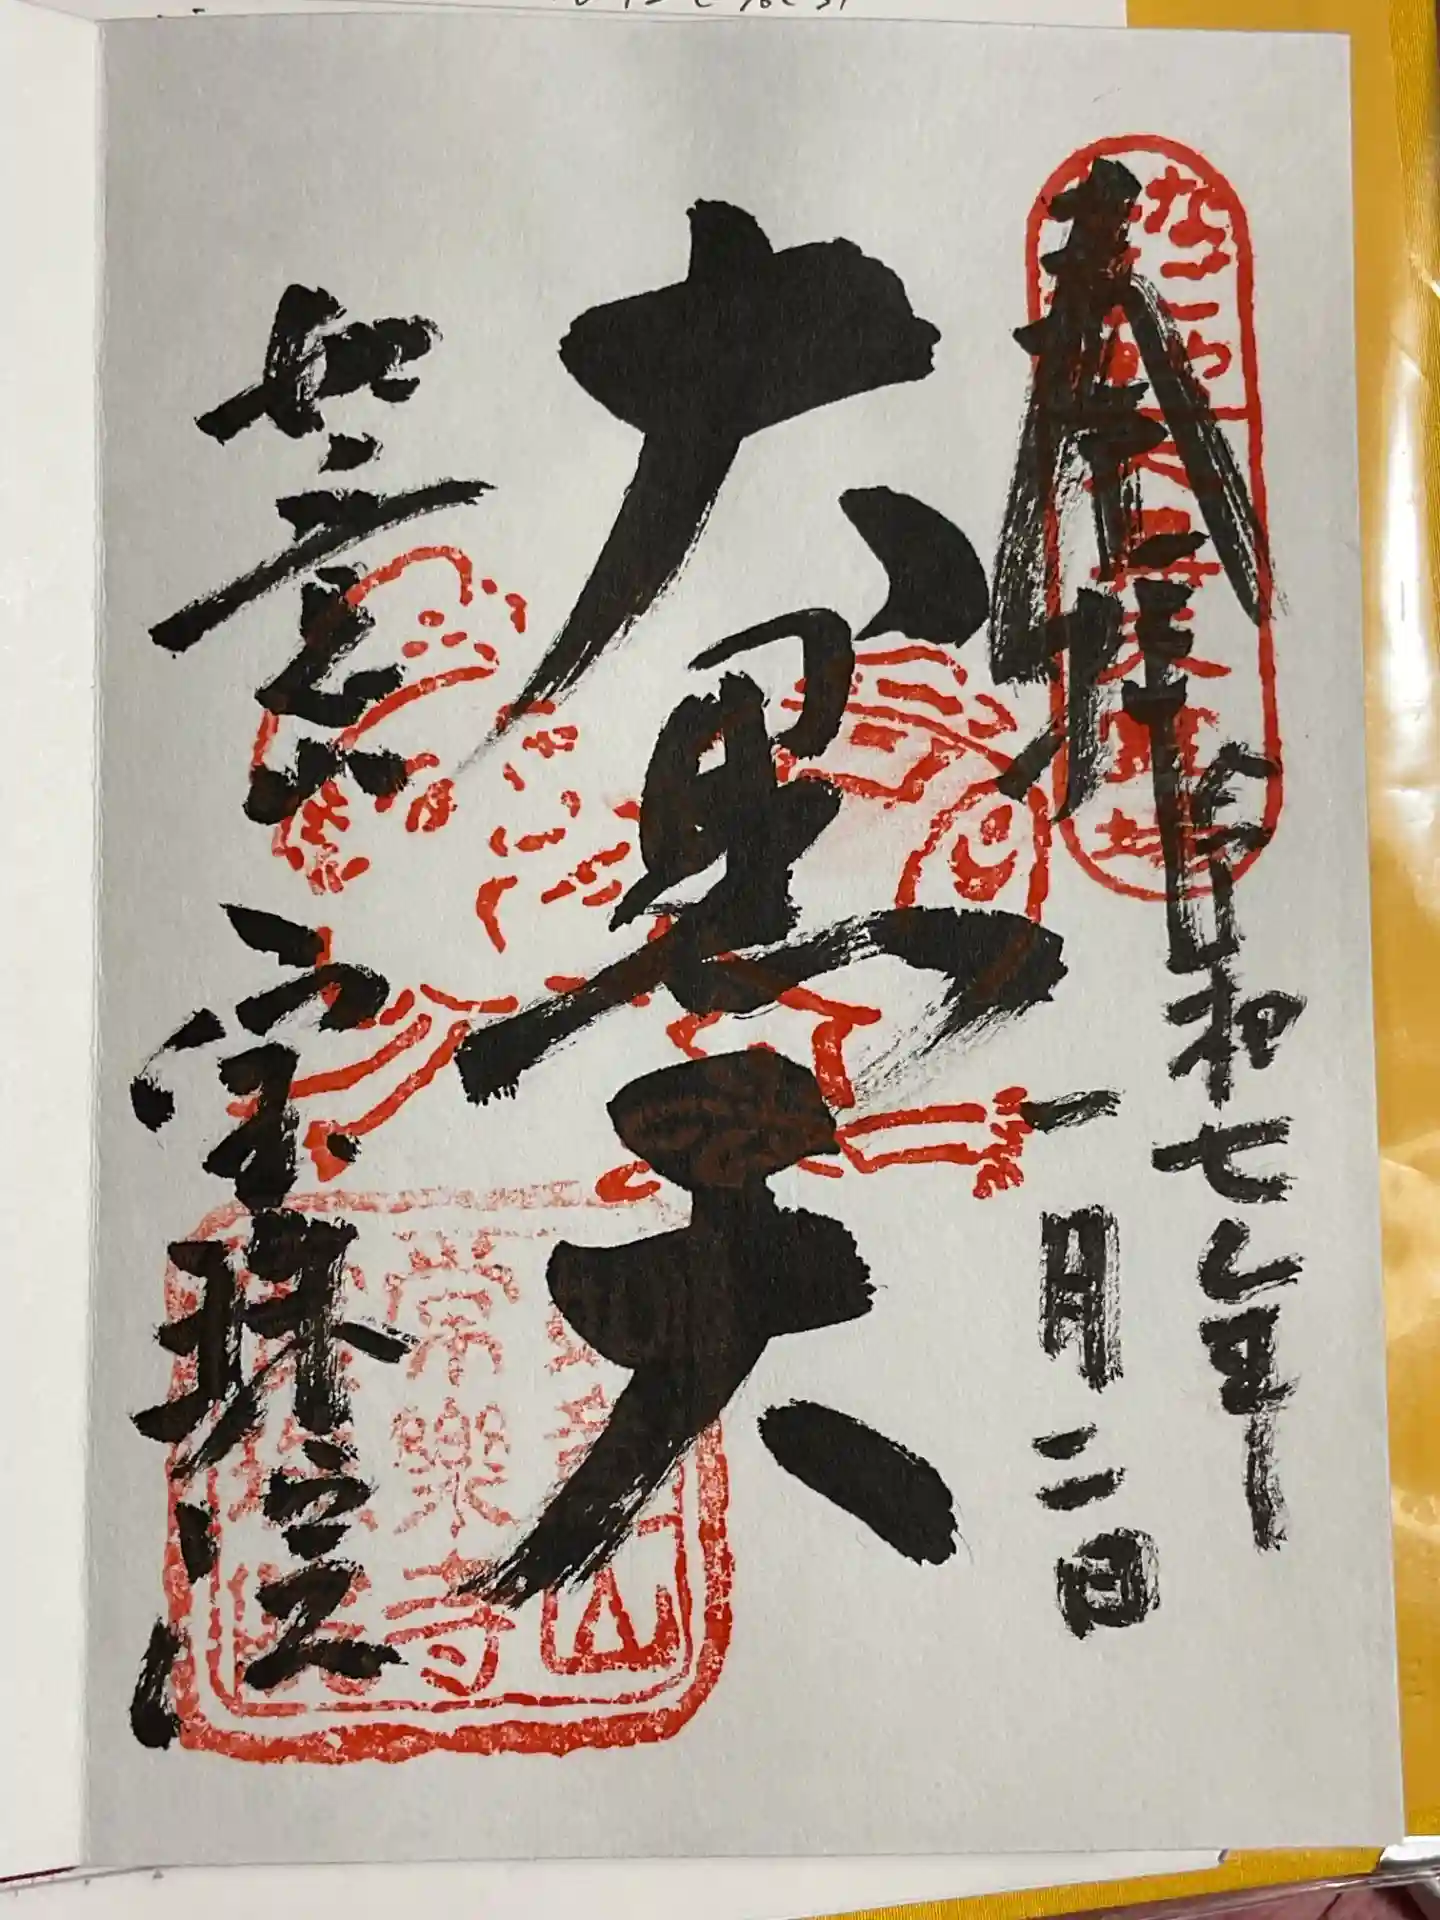 なごや
奉拝
令和七年
一月二日
大黒天
如意山
宝珠院
常樂寺